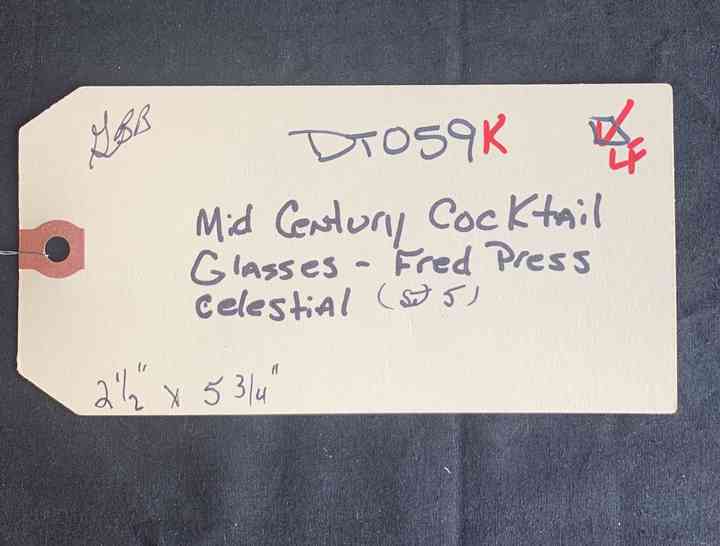 GBB
DT059K
LF
Mid Century Cocktail
Glasses - Fred Press
Celestial (Set 5)
2 1/2" x 5 3/4"